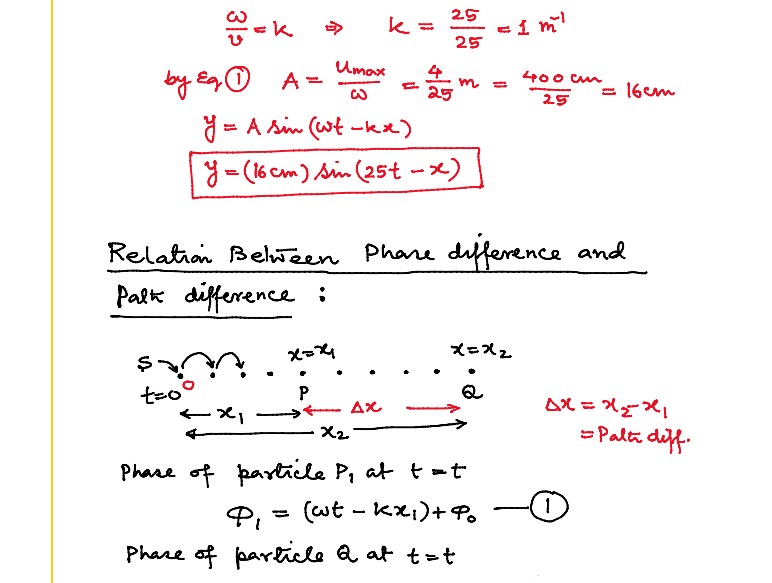 ω/v = k ⇒ k = 25/25 = 1 m⁻¹
by Eq ① A = Umax/ω = 4/25 m = 400 cm/25 = 16cm
y = A sin (ωt - kx)
y = (16 cm) sin (25t - x)
Relation Between Phase difference and
Path difference :
S x=x₁ x=x₂
t=0 O P Q
x₁ Δx Δx = x₂-x₁
x₂ = Path diff.
Phase of particle P, at t=t
Φ₁ = (ωt - kx₁) + Φ₀ — ①
Phase of particle Q at t=t